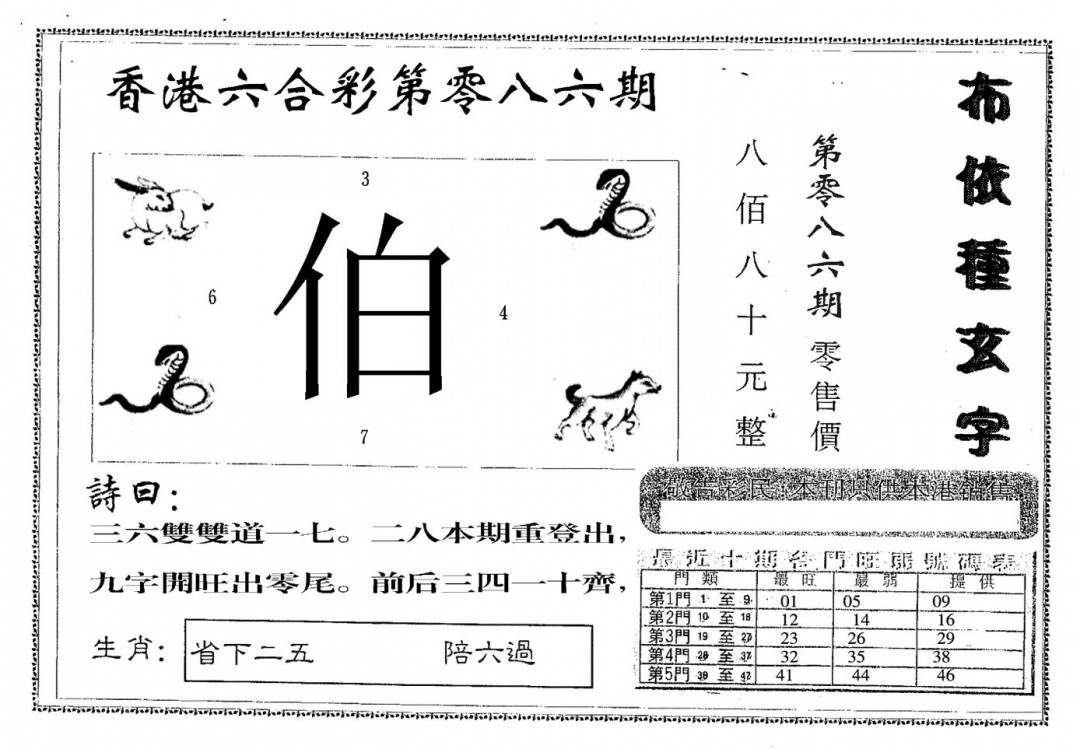 香港六合彩第零八六期
布依種玄字
第零八六期零售價
八佰八十元整
3
6
伯
4
7
詩曰：
三六雙雙道一七。二八本期重登出，
九字開旺出零尾。前后三四一十齊，
生肖：省下二五 陪六過
敬告彩民：本刊只供本港銷售
最近十期各門旺弱號碼表
門類 最旺 最弱 提供
第1門 1 至 9 01 05 09
第2門 10 至 18 12 14 16
第3門 19 至 27 23 26 29
第4門 28 至 37 32 35 38
第5門 38 至 47 41 44 46